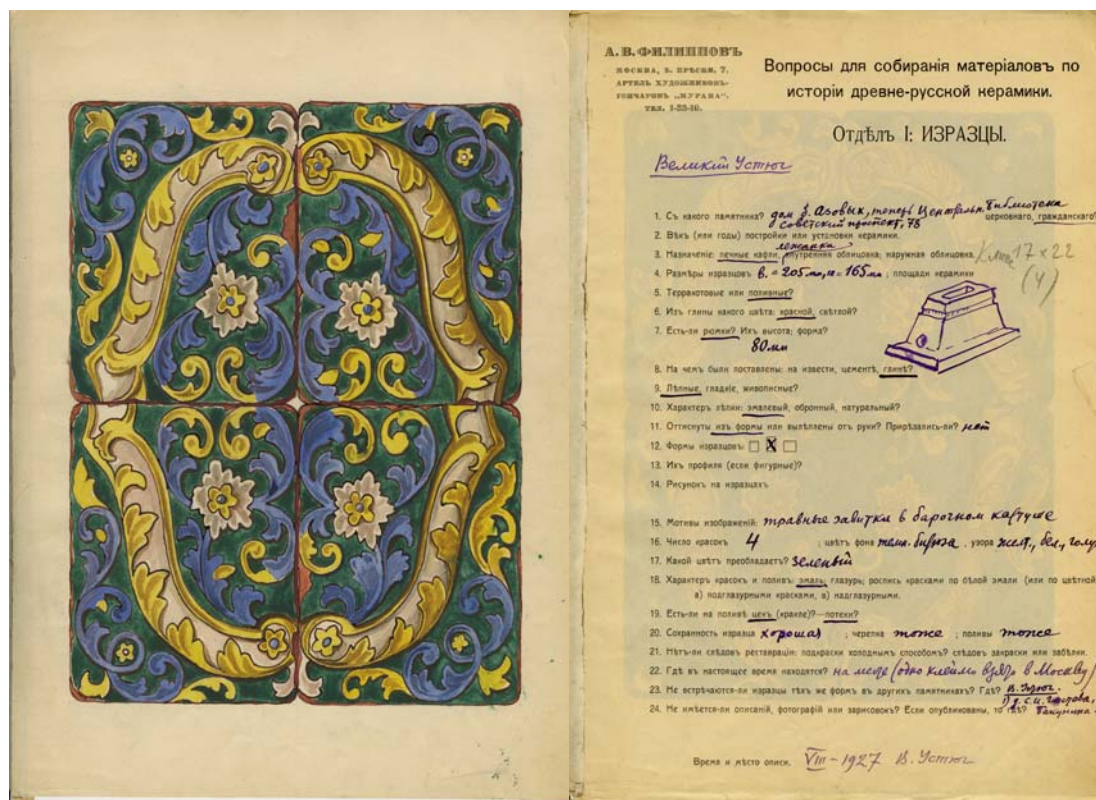 А. В. ФИЛИППОВЪ
МОСКВА, Б. ПРѢСНЯ, 7.
АРТЕЛЬ ХУДОЖНИКОВЪ-
ГОНЧАРОВЪ „МУРАВА“.
ТЕЛ. 1-33-10.
Вопросы для собиранія матеріаловъ по
исторіи древне-русской керамики.
Отдѣлъ I: ИЗРАЗЦЫ.
Великий Устюг
1. Съ какого памятника? дом б. Азовых, теперь Центральн. библиотека церковнаго, гражданскаго?
Советский проспект, 78
2. Вѣкъ (или годы) постройки или установки керамики.
лежанка
3. Назначеніе: печные кафли, внутренняя облицовка; наружная облицовка. 17 x 22
4. Размѣры изразцовъ в. = 205 мм, = 165 мм ; площади керамики (4)
5. Терракотовые или поливные?
6. Изъ глины какого цвѣта: красной, свѣтлой?
7. Есть-ли рюмки? Ихъ высота; форма?
80 мм
8. На чемъ были поставлены: на извести, цементѣ, глинѣ?
9. Лѣпные, гладкіе, живописные?
10. Характеръ лѣпки: эмалевый, обронный, натуральный?
11. Оттиснуты изъ формы или вылѣплены отъ руки? Прирѣзались-ли? нет
12. Формы изразцовъ: X
13. Ихъ профиля (если фигурные)?
14. Рисунокъ на изразцахъ
15. Мотивы изображеній: травные завитки в барочном картуше
16. Число красокъ 4 ; цвѣтъ фона темн. бирюза , узора желт., бел., голу
17. Какой цвѣтъ преобладаетъ? зеленый
18. Характеръ красокъ и поливъ: эмаль, глазурь; роспись красками по бѣлой эмали (или по цвѣтной
а) подглазурными красками, в) надглазурными.
19. Есть-ли на поливѣ цекъ (кракле)?—потеки?
20. Сохранность изразца хорошая ; черепка тоже ; поливы тоже
21. Нѣтъ-ли слѣдовъ реставраціи: подкраски холоднымъ способомъ? слѣдовъ закраски или забѣлки.
22. Гдѣ въ настоящее время находятся? на месте (одно клеймо взято в Москву)
23. Не встрѣчаются-ли изразцы тѣхъ же формъ въ другихъ памятникахъ? Гдѣ? В. Устюг.
1) д. С. И.
24. Не имѣется-ли описаній, фотографій или зарисовокъ? Если опубликованы, то гдѣ?
Время и мѣсто описи. VIII – 1927 В. Устюг